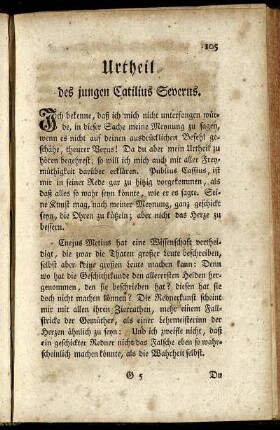 105
Urtheil
des jungen Catilius Severus.
Ich bekenne, daß ich mich nicht unterfangen wür-
de, in dieser Sache meine Meynung zu sagen,
wenn es nicht auf deinen ausdrücklichen Befehl ge-
schähe, theurer Verus! Da du aber mein Urtheil zu
hören begehrest; so will ich mich auch mit aller Frey-
müthigkeit darüber erklären. Publius Cassius, ist
mir in seiner Rede gar zu hitzig vorgekommen, als
daß alles so wahr seyn könnte, wie er es sagte. Sei-
ne Kunst mag, nach meiner Meynung, ganz geschickt
seyn, die Ohren zu kützeln; aber nicht das Herze zu
bessern.
Cnejus Metius hat eine Wissenschaft verthei-
digt, die zwar die Thaten großer Leute beschreiben,
selbst aber keine großen Leute machen kann: Denn
wo hat die Geschichtkunde den allerersten Helden her-
genommen, den sie beschrieben hat? diesen hat sie
doch nicht machen können? Die Redner­kunst scheint
mir mit allen ihren Zierrathen, mehr einem Fall-
stricke der Gemüther, als einer Lehrmeisterinn der
Herzen ähnlich zu seyn: Und ich zweifle nicht, daß
ein geschickter Redner nicht das Falsche eben so wahr-
scheinlich machen könnte, als die Wahrheit selbst.
G 5 Du